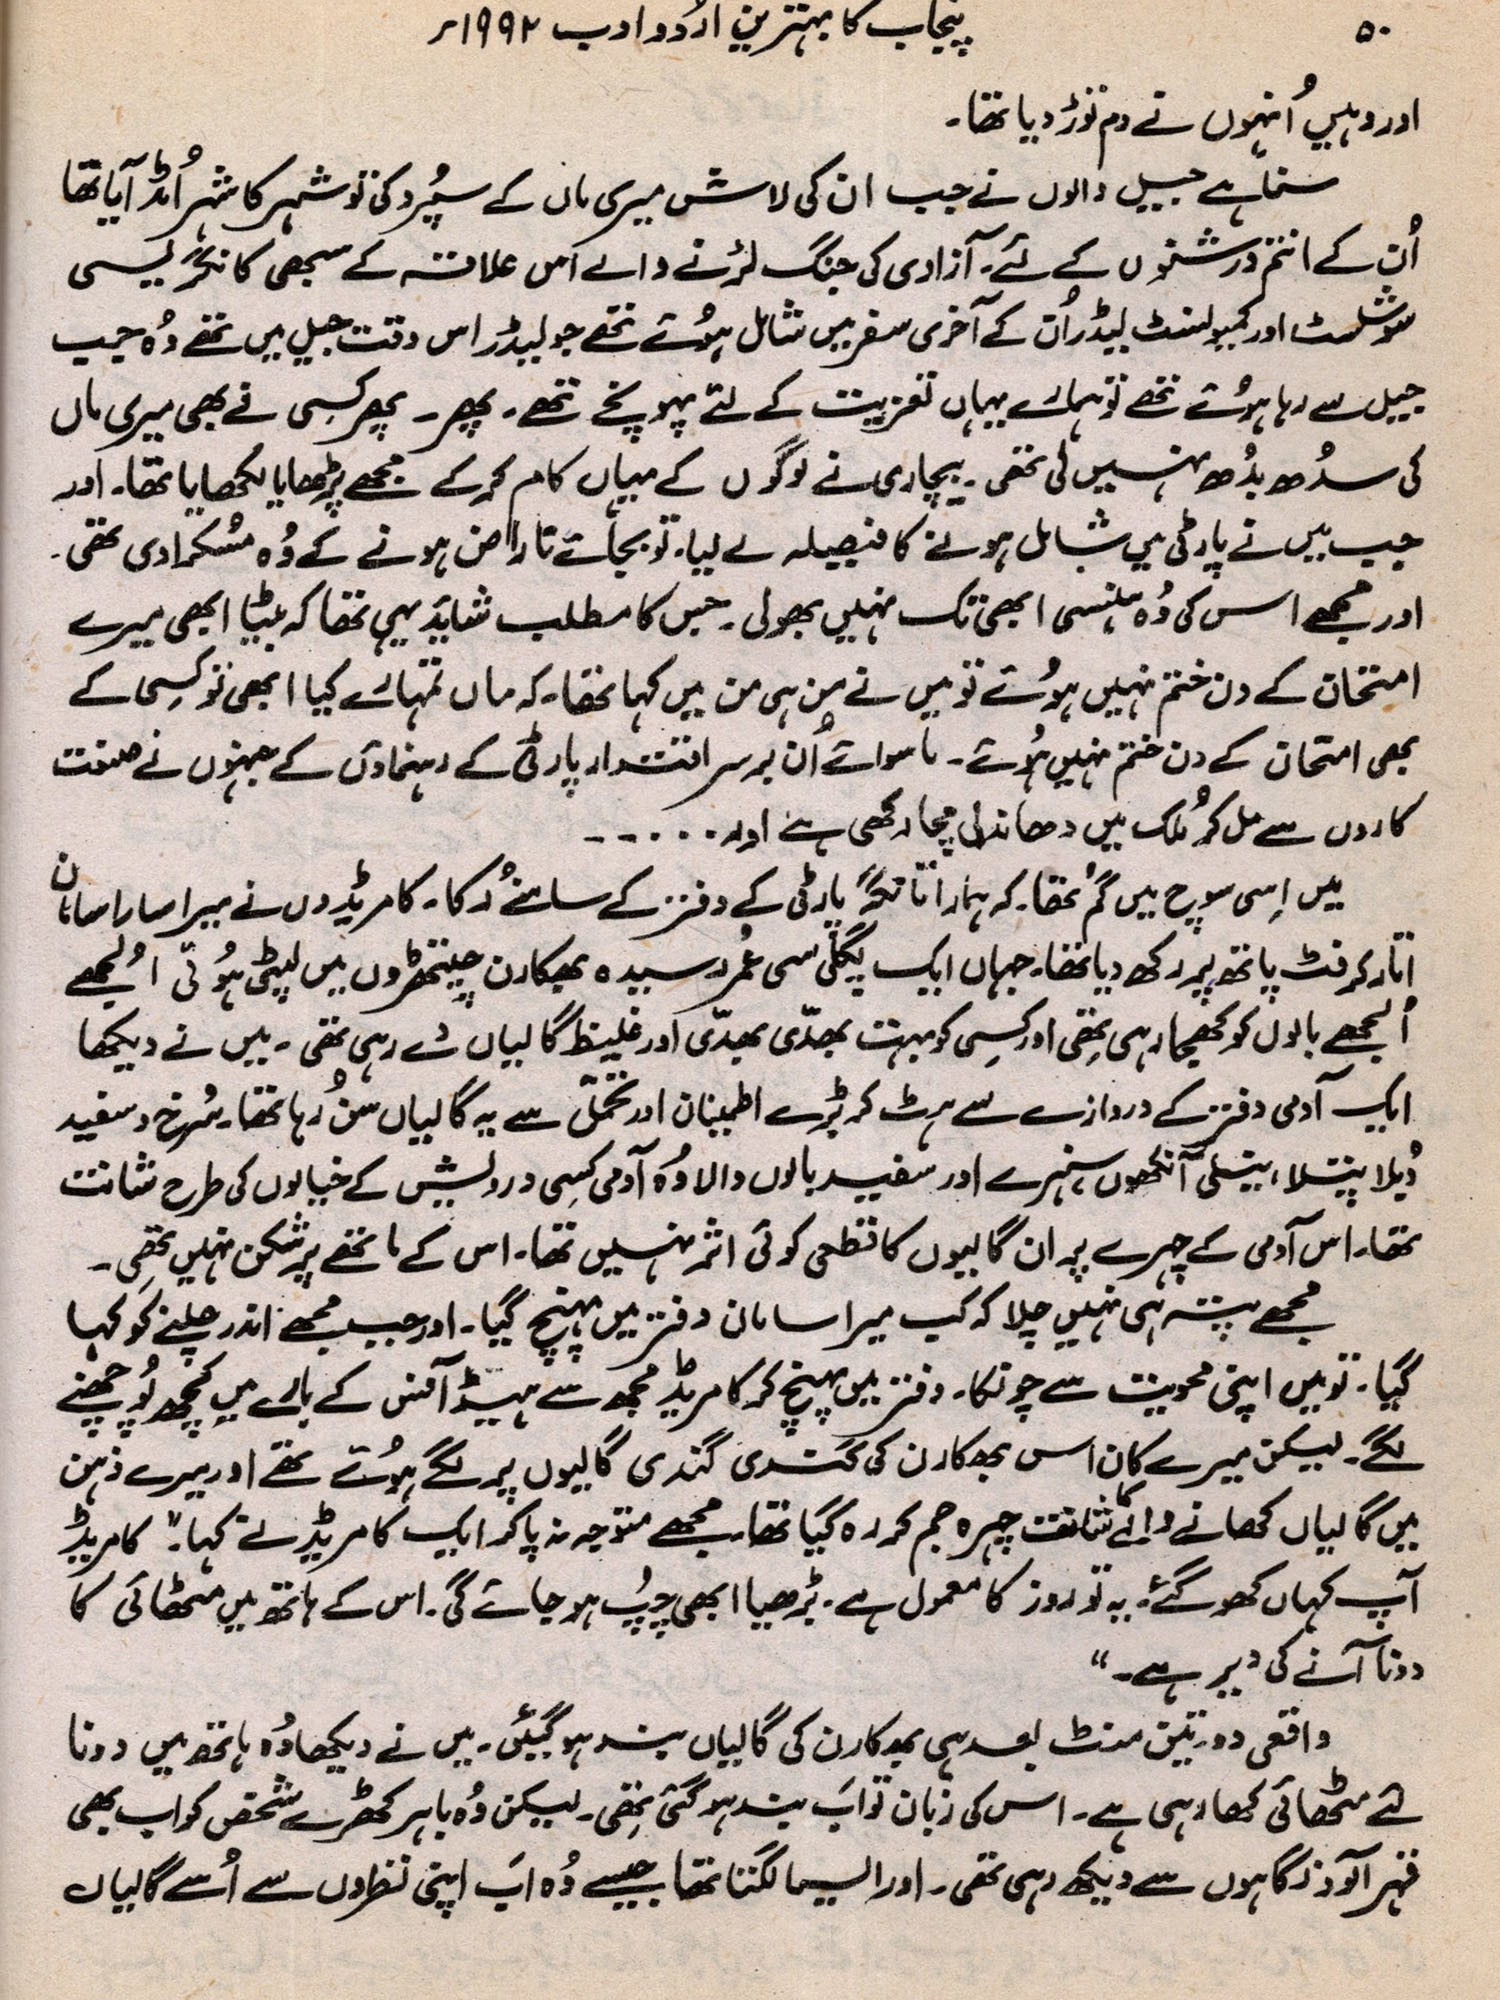 ۵۰
پنجاب کا بہترین اردو ادب ۱۹۹۲ء
اور وہیں اُنہوں نے دم توڑ دیا تھا۔
سنا ہے جیل والوں نے جب ان کی لاش میری ماں کے سپُرد کی تو شہر کا شہر اُمڈ آیا تھا
اُن کے انتم درشنوں کے لئے۔ آزادی کی جنگ لڑنے والے اس علاقہ کے سبھی کانگریسی
سوشلسٹ اور کمیونسٹ لیڈر اُن کے آخری سفر میں شامل ہوُئے تھے جو لیڈر اس وقت جیل میں تھے وُہ جب
جیل سے رہا ہوُئے تھے تو ہمارے یہاں تعزیت کے لئے پہونچے تھے۔ پھر۔ پھر کسِی نے بھی میری ماں
کی سدُھ بدُھ نہیں لی تھی۔ بیچاری نے لوگوں کے میہاں کام کر کے مجھے پڑھایا لکھایا تھا۔ اور
جب میں نے پارٹی میں شامل ہونے کا فیصلہ لے لیا۔ تو بجائے ناراض ہونے کے وُہ مسُکرا دی تھی۔
اور مجھے اس کی وُہ ہنسی ابھی تک نہیں بھولی۔ جس کا مطلب شائد یہی تھا کہ بیٹا ابھی میرے
امتحان کے دن ختم نہیں ہوُئے تو میں نے من ہی من میں کہا تھا۔ کہ ماں تمہارے کیا ابھی تو کسِی کے
بھی امتحان کے دن ختم نہیں ہوُئے۔ ماسوائے اُن برسر اقتدار پارٹی کے رہنماؤں کے جنہوں نے صنعت
کاروں سے مل کر مُلک میں دھاندلی مچا رکھی ہے اور۔۔۔۔۔۔
میں اِسی سوچ میں گُم تھا۔ کہ ہمارا تانگہ پارٹی کے دفتر کے سامنے رُکا۔ کامریڈوں نے میرا سارا سامان
اتار کر فٹ پاتھ پر رکھ دیا تھا۔ جہاں ایک پگلی سی عمُر رسیدہ بھکارن چیتھڑوں میں لپٹی ہوُئی اُلجھے
اُلجھے بالوں کو کھجا رہی تھِی اور کسِی کو بہت بھدّی بھدّی اور غلیظ گالیاں دے رہی تھی۔ میں نے دیکھا
ایک آدمی دفتر کے دروازے سے ہٹ کر بڑے اطمینان اور تحمّل سے یہ گالیاں سنُ رہا تھا۔ سُرخ و سفید
دُبلا پتلا، نیلی آنکھوں سنہرے اور سفید بالوں والا وُہ آدمی کسِی درویش کے خیالوں کی طرح شانت
تھا۔ اس آدمی کے چہرے پہ ان گالیوں کا قطعی کوئی اثر نہیں تھا۔ اس کے ماتھے پر شکن نہیں تھِی۔
مجھے پتہ ہی نہیں چلا کہ کب میرا سامان دفتر میں پہنچ گیا۔ اور جب مجھے اندر چلنے کو کہا
گیا۔ تو میں اپنی محویت سے چونکا۔ دفتر میں پہنچ کر کامریڈ مجھ سے ہیڈ آفس کے بارے میں کچھ پُوچھنے
لگے۔ لیکن میرے کان اس بھکارن کی گندی گندی گالیوں پر لگے ہوُئے تھے اور میرے ذہن
میں گالیاں کھانے والے کا شانت چہرہ جم کر رہ گیا تھا۔ مجھے متوجہ نہ پا کر ایک کامریڈ نے کہا۔" کامریڈ
آپ کہاں کھو گئے۔ یہ تو روز کا معمول ہے۔ بڑھیا ابھی چپُ ہو جائے گی۔ اس کے ہاتھ میں مٹھائی کا
دونا آنے کی دیر ہے۔"
واقعی دو تین منٹ بعد ہی بھکارن کی گالیاں بند ہو گئیں۔ میں نے دیکھا وُہ ہاتھ میں دونا
لئے مٹھائی کھا رہی ہے۔ اس کی زبان تو اَب بند ہو گئی تھِی۔ لیکن وُہ باہر کھڑے شخص کو اب بھی
قہر آلود نگاہوں سے دیکھ رہی تھی۔ اور ایسا لگتا تھا جیسے وُہ اَب اپنی نظروں سے اُسے گالیاں